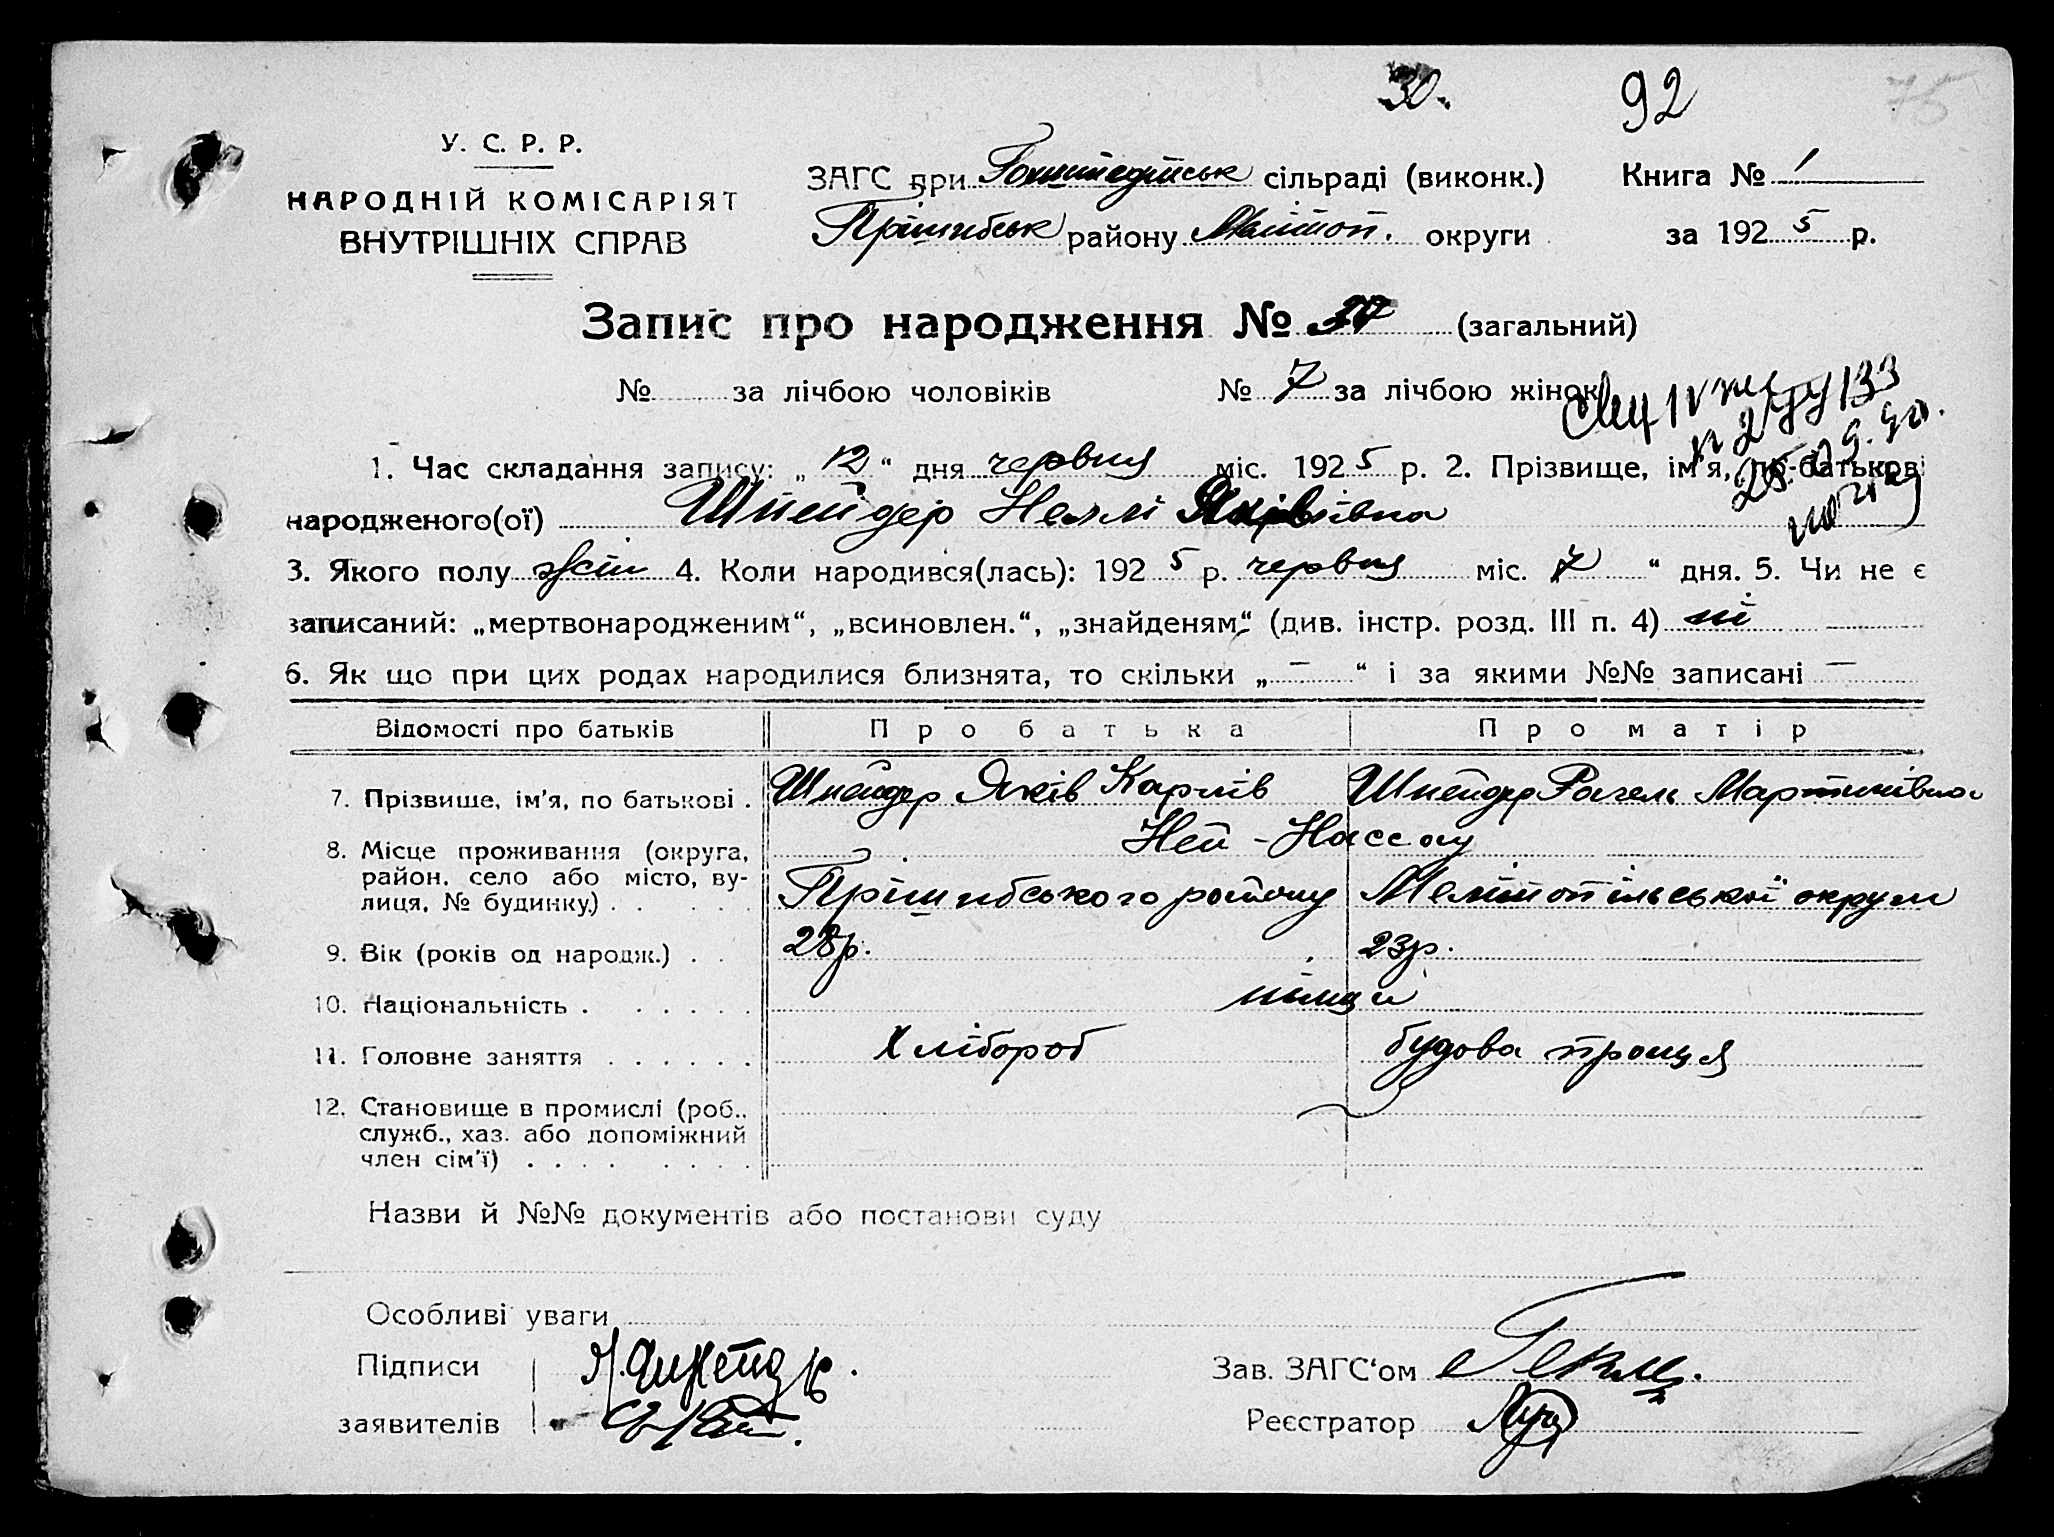 30. 92 75
У. С. Р. Р.
НАРОДНІЙ КОМІСАРІЯТ
ВНУТРІШНІХ СПРАВ
ЗАГС при сільраді (виконк.) Книга № 1
Прішибськ району Мелітоп. округи за 1925 р.
Запис про народження № (загальний)
№ за лічбою чоловіків № 7 за лічбою жінок
1. Час складання запису: „12“ дня червня міс. 1925 р. 2. Прізвище, ім'я, по-батькові
народженого(ої) Шнейдер Неллі Яківівна
3. Якого полу жін 4. Коли народився(лась): 1925 р. червня міс. 7 “ дня. 5. Чи не є
записаний: „мертвонародженим“, „всиновлен.“, „знайденям“ (див. інстр. розд. III п. 4) ні
6. Як що при цих родах народилися близнята, то скільки „ — “ і за якими №№ записані —
Відомості про батьків Про батька Про матір
7. Прізвище, ім'я, по батькові . Шнейдер Яків Карлів Шнейдер Рахель Мартинівна
Ней-Нассау
8. Місце проживання (округа, район, село або місто, вулиця, № будинку) . . . . . Прішибського району Мелітопільської округи
9. Вік (років од народж.) . . 28р. 23р.
10. Національність . . . . . . німці
11. Головне заняття . . . . . . Хлібороб будова праця
12. Становище в промислі (роб., служб., хаз. або допоміжний член сім'ї) . . . . . . . .
Назви й №№ документів або постанови суду
Особливі уваги
Підписи Зав. ЗАГС'ом
заявителів Реєстратор